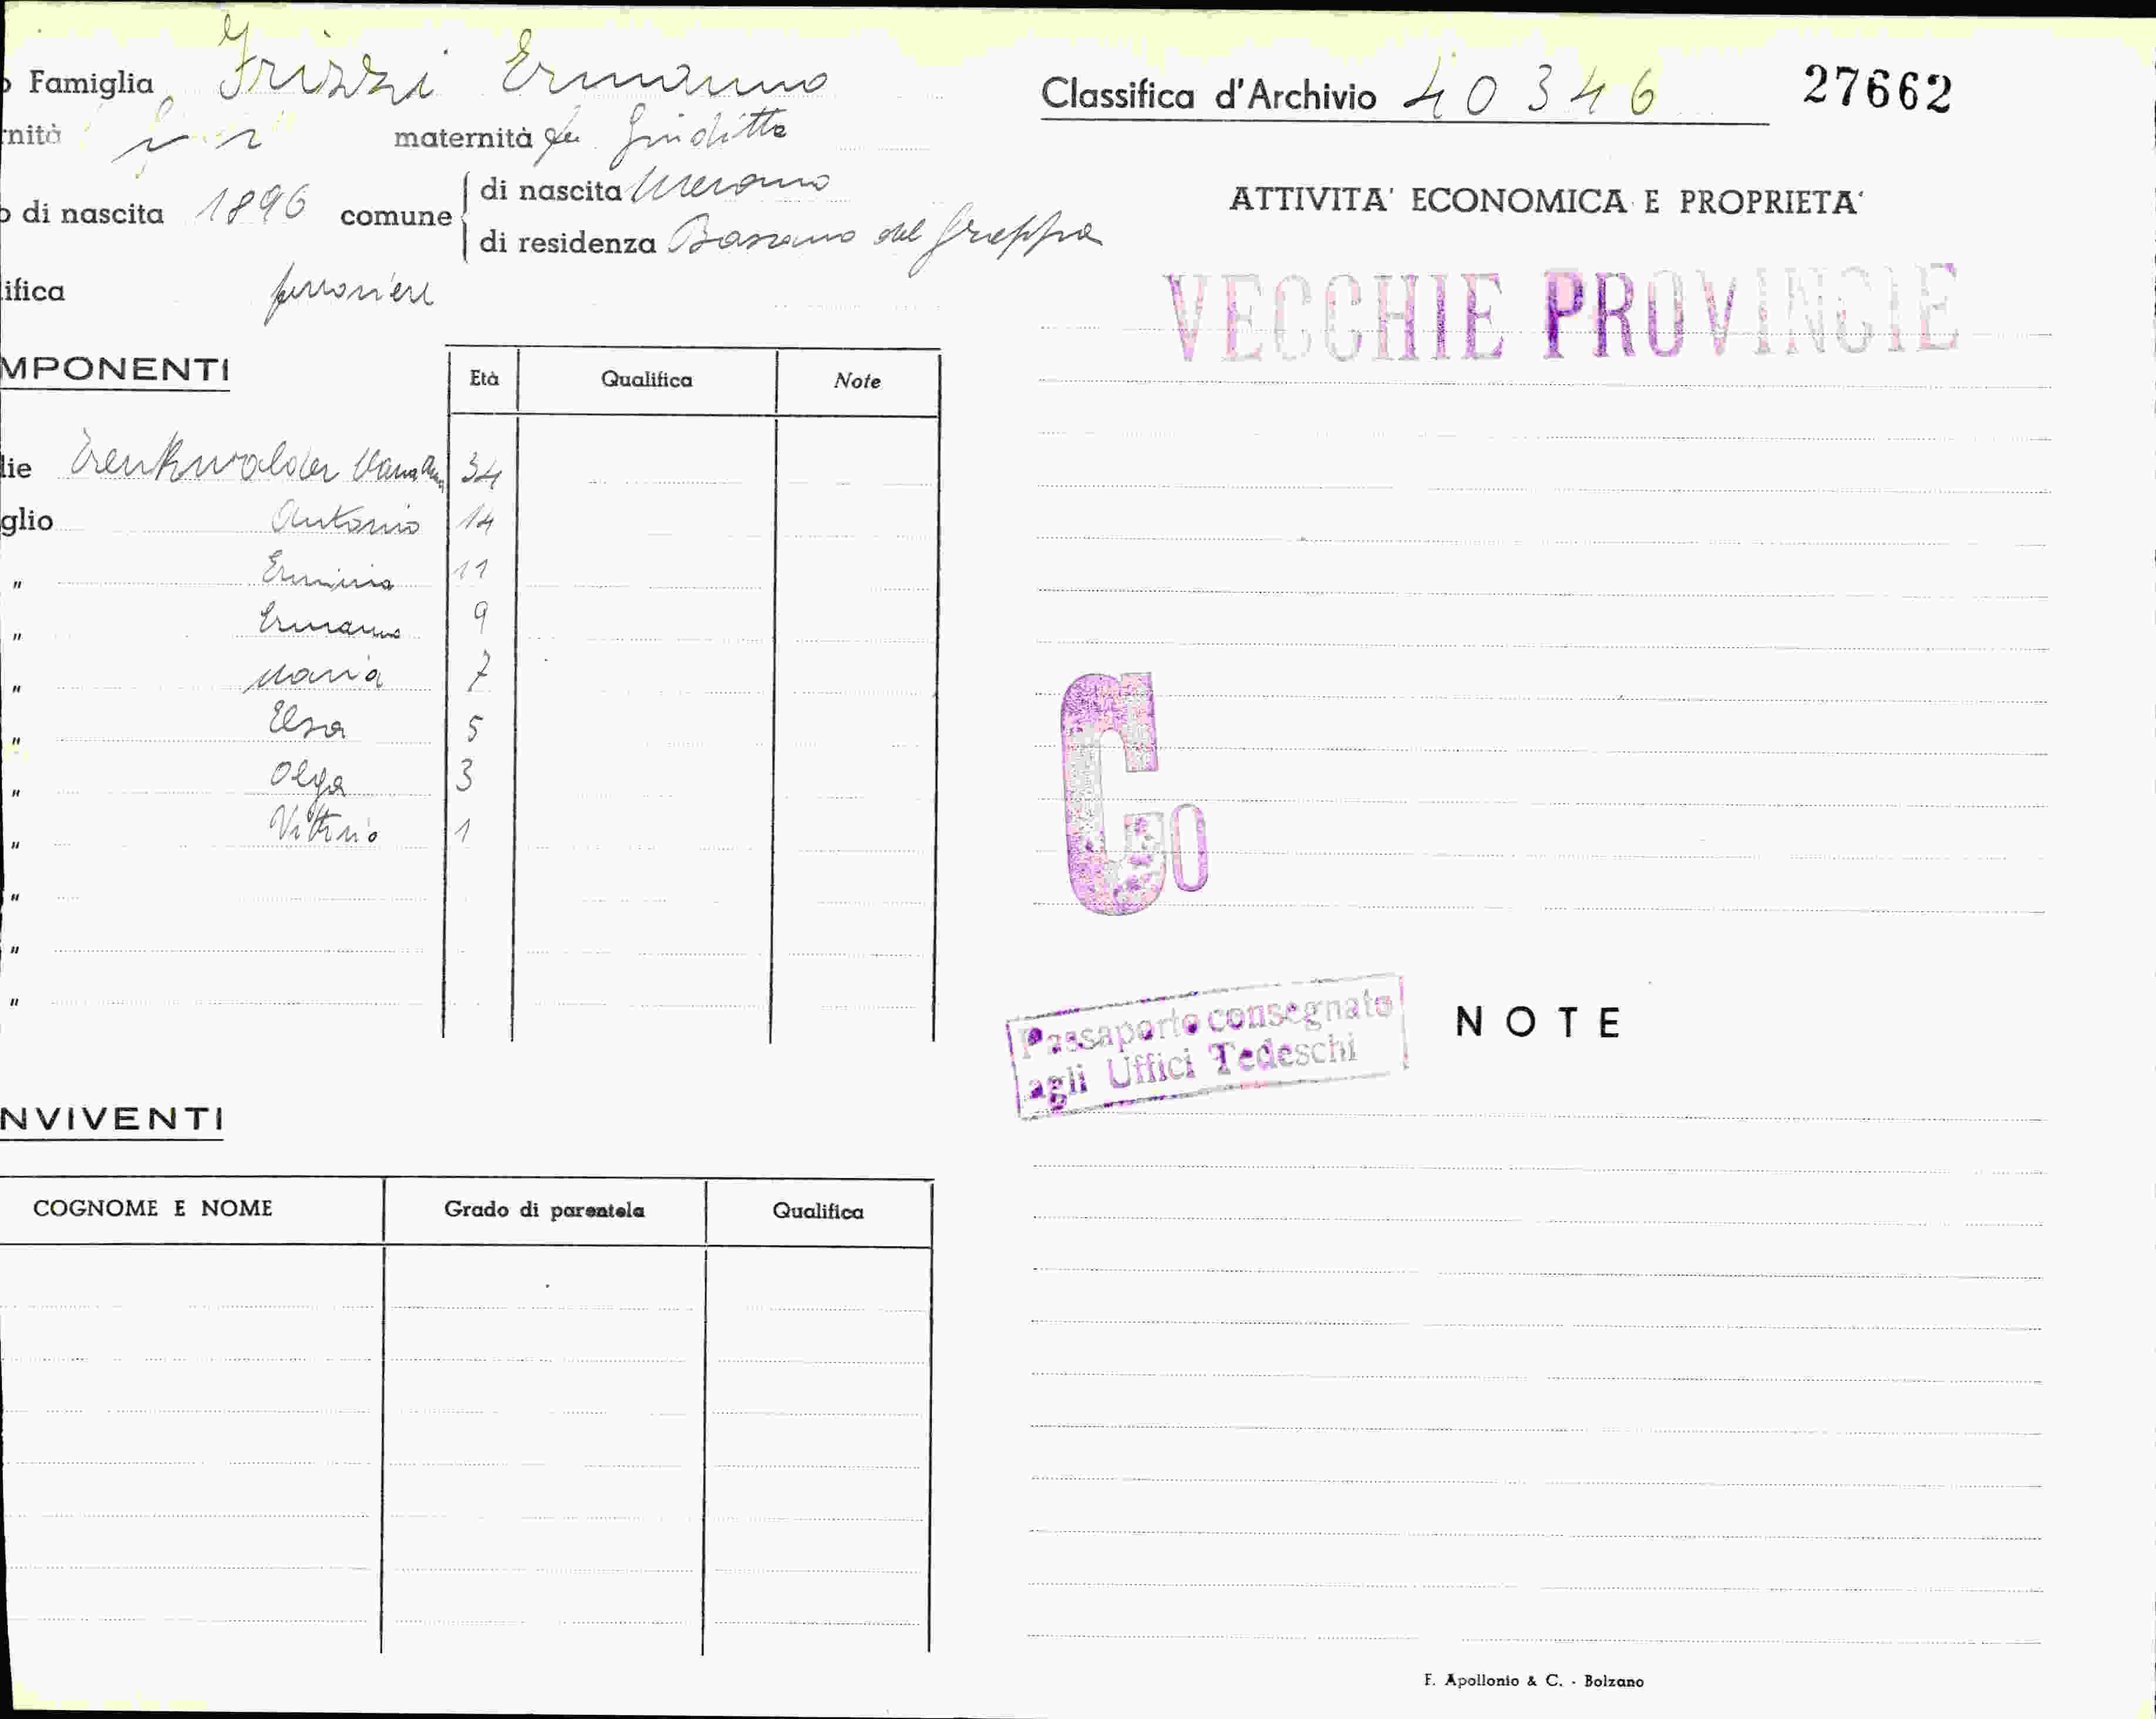 o Famiglia Frizzi Ermanno
rnità n n maternità fu Giuditta
o di nascita 1896 comune
di nascita Merano
di residenza Bassano del Grappa
ifica
MPONENTI
Età Qualifica Note
lie Trenkwalder 34
glio Antonio 14
" Erminia 11
" Ermanno 9
" Maria 7
" Elsa 5
" Olga 3
" Vittorio 1
"
"
"
NVIVENTI
COGNOME E NOME Grado di parentela Qualifica
Classifica d'Archivio 40346 27662
ATTIVITA' ECONOMICA E PROPRIETA'
VECCHIE PROVINCIE
Co
Passaporto consegnato
agli Uffici Tedeschi
NOTE
F. Apollonio & C. - Bolzano